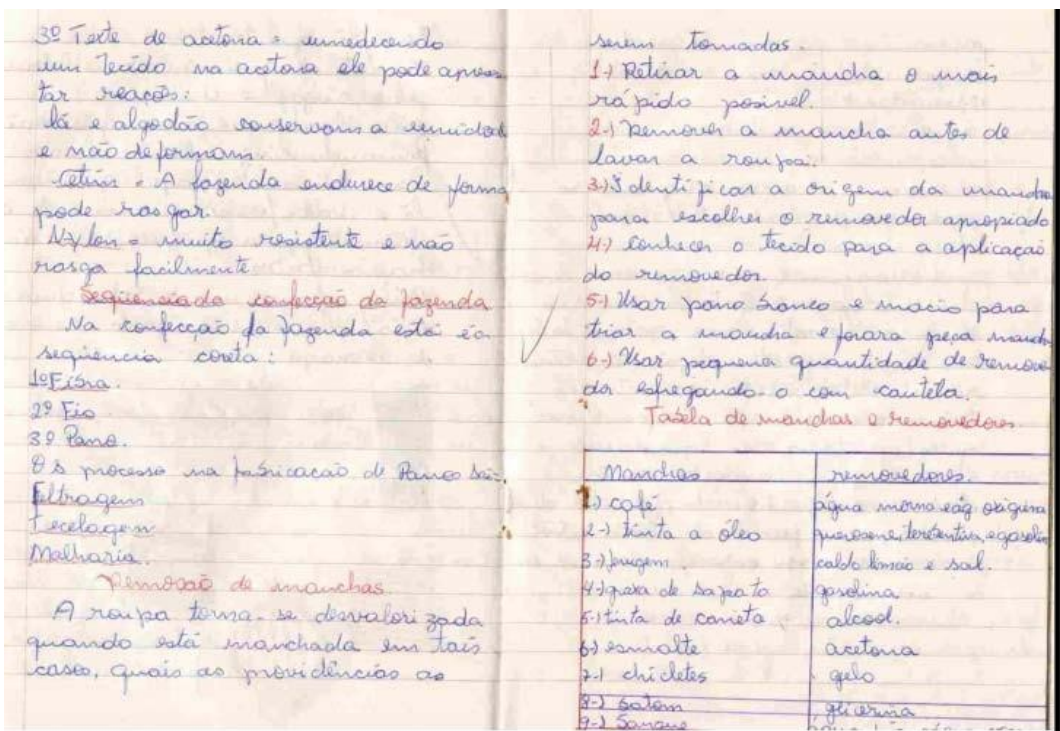 3º Texte de acetona = umedecendo
um tecido na acetona ele pode apresen
tar reacões:
lá e algodão conservam a umidade
e não deformam.
Cetim = A fazenda endurece de forma
pode rasgar.
Nylon = muito resistente e não
rasga facilmente
Seqüência da confecção da fazenda
Na confecção da fazenda esta é a
seqüencia coreta:
1º Fibra.
2º Fio
3º Pano.
Os processo na fabricacão de Panos são
Feltragem
Tecelagem
Malharia.
Remocão de manchas.
A roupa torna-se desvalorizada
quando está manchada em tais
casos, quais as providências as
serem tomadas.
1-) Retirar a mancha o mais
rápido posivel.
2-) Remover a mancha antes de
lavar a roupa.
3-) Identificar a origem da mancha
para escolher o removedor apropiado
4-) Conhecer o tecido para a aplicação
do removedor.
5-) Usar pano branco e macio para
triar a mancha e para peça manch
6-) Usar pequena quantidade de remove
dor esfregando-o com cautela.
Tabela de manchas e removedores.
Manchas removedores.
1-) café água morna e ág. oxigena
2-) tinta a óleo querosene, terebentina, e gasolin
3-) ferrugem. caldo limão e sal.
4-) graxa de sapato gasolina
5-) tinta de caneta alcool.
6-) esmalte acetona
7-) chicletes gelo
8-) batom glicerina
9-) Sangue